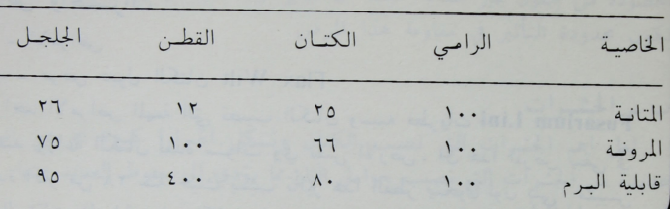 الخاصية الرامي الكتان القطن الجلجل
المتانة ١٠٠ ٢٥ ١٢ ٢٦
المرونة ١٠٠ ٦٦ ١٠٠ ٧٥
قابلية البرم ١٠٠ ٨٠ ٤٠٠ ٩٥